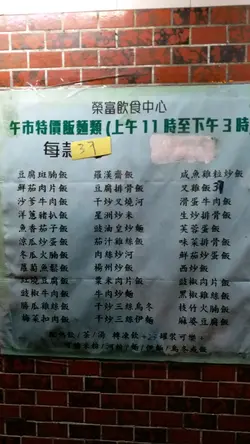 榮富飲食中心
午市特價飯麵類(上午11時至下午3時
每款 37
豆腐斑腩飯
鮮茄肉片飯
沙爹牛肉飯
洋蔥豬扒飯
魚香茄子飯
涼瓜炒蛋飯
冬瓜火腩飯
蘿蔔魚鬆飯
紅燒豆腐飯
豉椒牛肉飯
勝瓜雞絲飯
梅菜扣肉飯
羅漢齋飯
豆腐排骨飯
干炒叉燒河
星洲炒米
豉油皇炒麵
茄汁雞絲飯
肉絲炒河
楊州炒飯
粟米肉片飯
牛肉炒麵
干炒三絲烏冬
干炒三絲伊麵
咸魚雞粒炒飯
叉雞飯 39
滑蛋牛肉飯
生炒排骨飯
芙蓉蛋飯
味菜排骨飯
鮮茄蛋飯
西炒飯
豉椒肉片飯
黑椒雞絲飯
枝竹火腩飯
麻婆豆腐飯